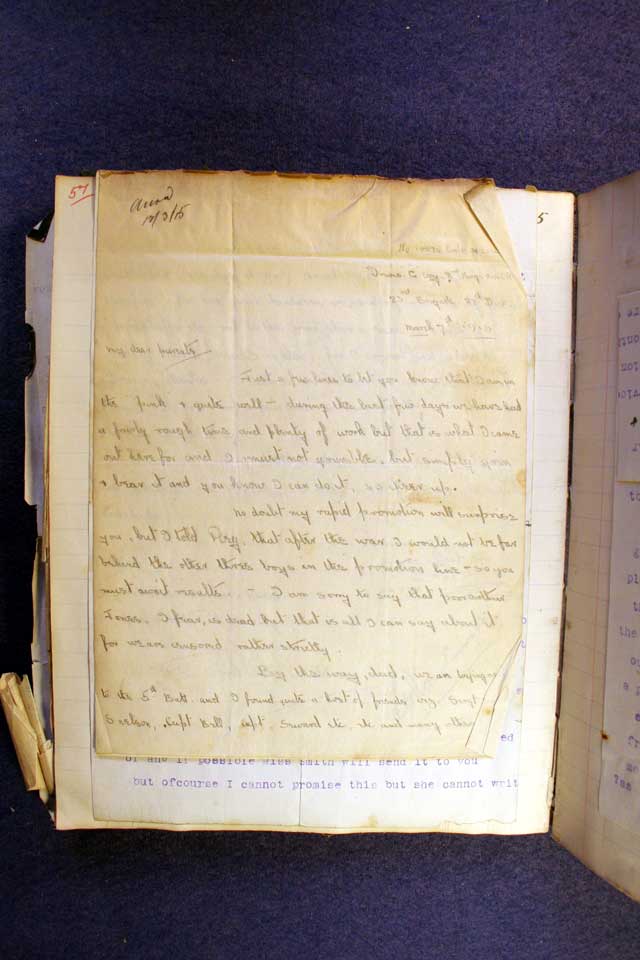 57
5
12/3/15
23rd Brigade 8th
March 7th
My dear parents
Just a few lines to let you know that I am in
the pink & quite well – during the last few days we have had
a fairly rough time and plenty of work but that is what I came
out here for and I must not grumble, but simply grin
& bear it and you know I can do it, so cheer up.
No doubt my rapid promotion will surprise
you, but I told Reg, that after the war I would not be far
behind the other three boys in the promotion line – so you
must await results. – I am sorry to say that poor Arthur
I fear, is dead but that is all I can say about it
for we are censored rather strictly.
By the way, dad, we are
to the 5th Batt. and I found quite a host of friends viz. Sergt
Capt Bell, Capt. etc, etc and many other
ed
of and if possible Miss Smith will send it to you
but ofcourse I cannot promise this but she cannot writ